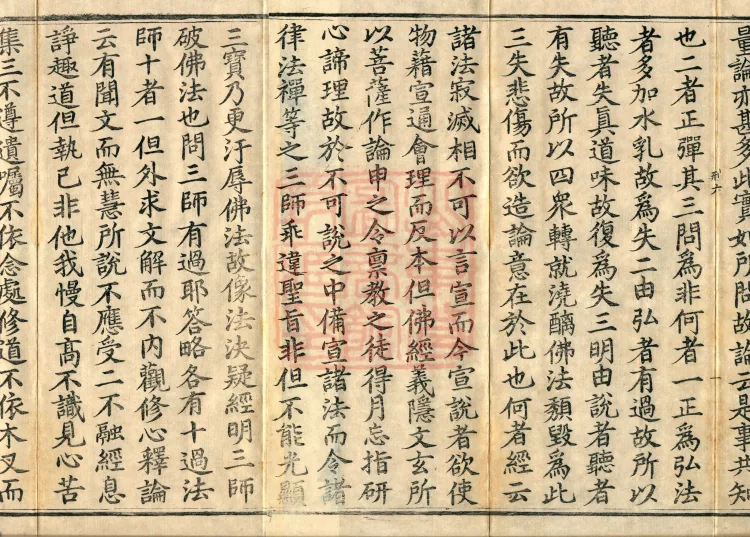 量論亦甚多此實如所問故論云是事共知
也二者正彈其三問為非何者一正為弘法
者多加水乳故為失二由弘者有過故所以
聽者失真道味故復為失三明由說者聽者
有失故所以四衆轉就澆醨佛法頹毀為此
三失悲傷而欲造論意在於此也何者經云
諸法寂滅相不可以言宣而今宣說者欲使
物藉宣通會理而反本但佛經義隱文玄所
以菩薩作論申之令稟教之徒得月忘指研
心諦理故於不可說之中備宣諸法而令諸
律法禪等之三師乖違聖旨非但不能光顯
三寶乃更汙辱佛法故像法決疑經明三師
破佛法也問三師有過耶答略各有十過法
師十者一但外求文解而不內觀修心釋論
云有聞文而無慧所說不應受二不融經息
諍趣道但執已非他我慢自高不識見心苦
集三不遵遺囑不依念處修道不依木叉而